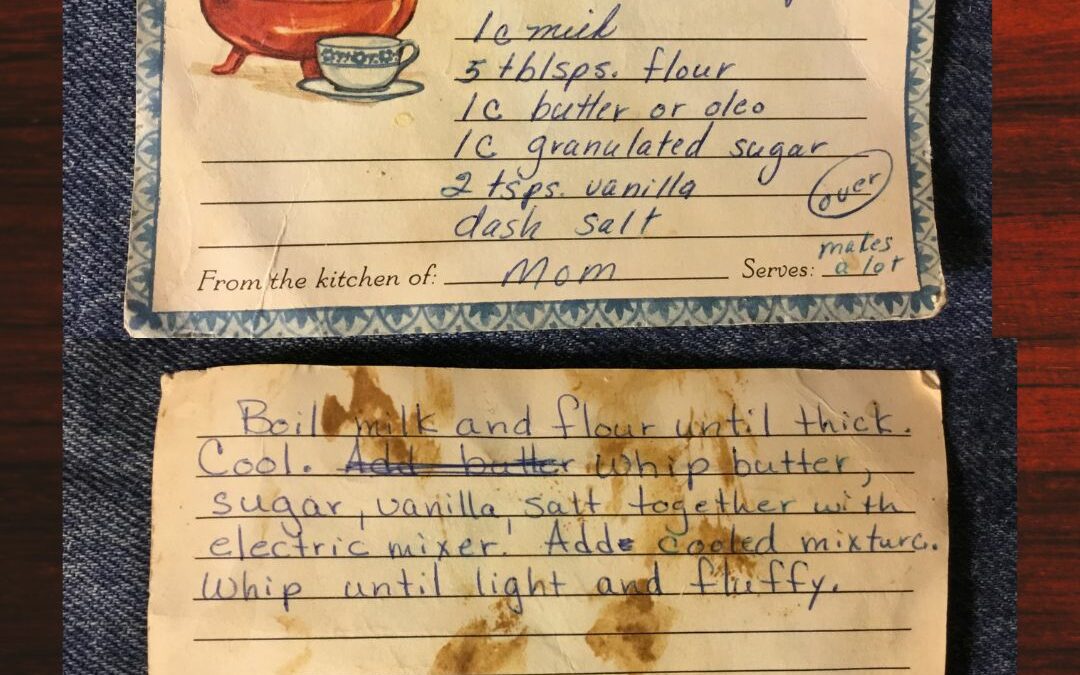 1c milk
5 tblsps. flour
1c butter or oleo
1c granulated sugar
2 tsps. vanilla
over
dash salt
From the kitchen of: Mom Serves: makes a lot
Boil milk and flour until thick.
Cool. Add butter Whip butter,
sugar, vanilla, salt together with
electric mixer. Add cooled mixture.
Whip until light and fluffy.